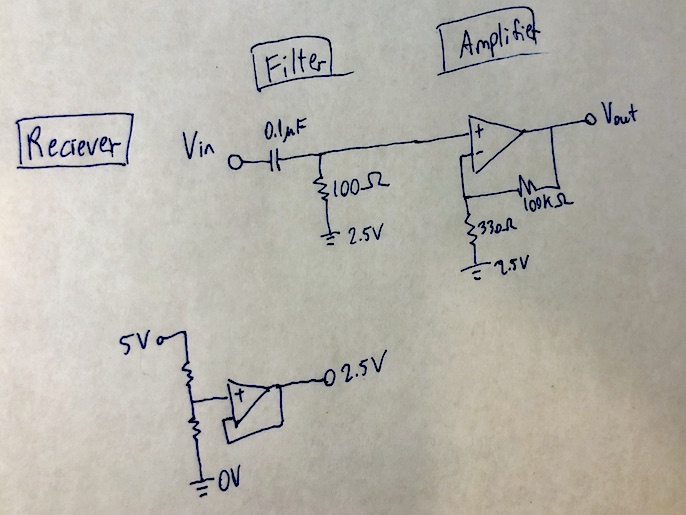 Filter
Amplifier
Reciever
Vin
0.1µF
100Ω
2.5V
+
-
Vout
100KΩ
330Ω
2.5V
5V
+
2.5V
0V